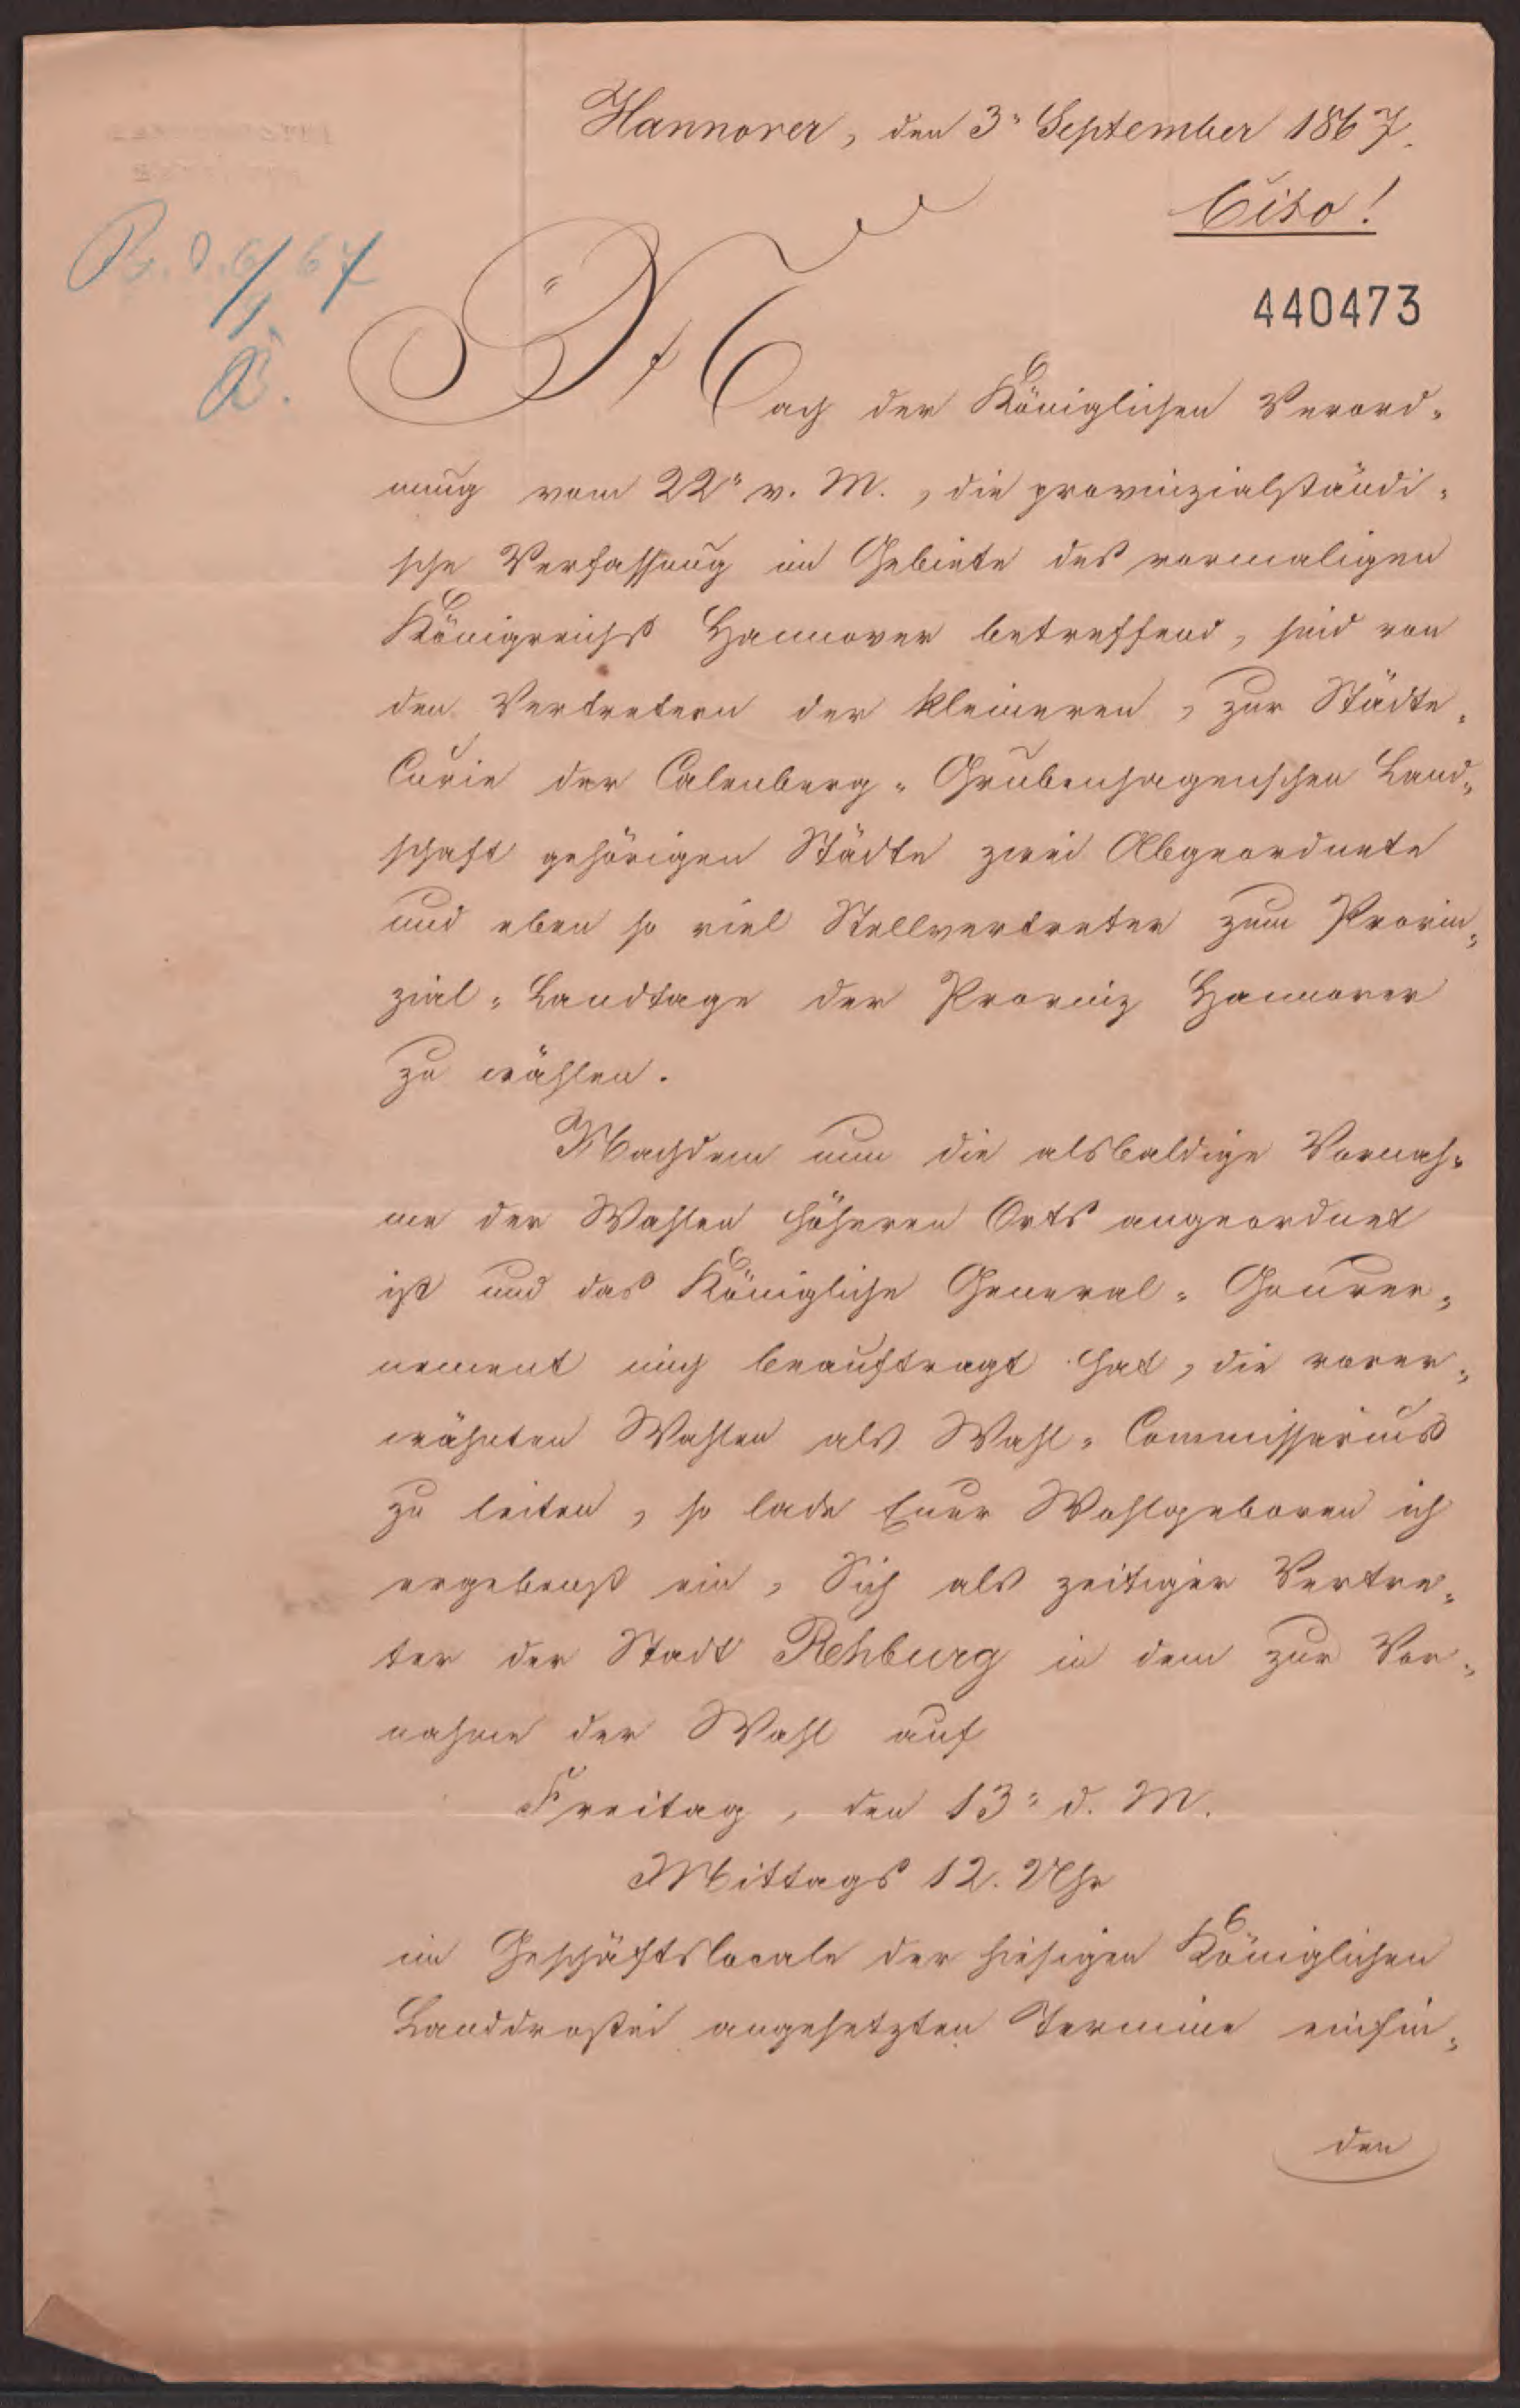 Hannover, den 3. September 1867.
Cito!
440473
Nach der Königlichen Verord-
nung vom 22. v. M., die provinzialständi-
sche Verfassung im Gebiete des vormaligen
Königreichs Hannover betreffend, sind von
den Vertretern der kleineren, zur Städte-
Curie der Calenberg-Grubenhagenschen Land-
schaft gehörigen Städte zwei Abgeordnete
und eben so viel Stellvertreter zum Provin-
zial-Landtage der Provinz Hannover
zu wählen.
Nachdem nun die alsbaldige Vornah-
me der Wahlen höheren Orts angeordnet
ist und das Königliche General-Gouver-
nement mich beauftragt hat, die vorer-
wähnten Wahlen als Wahl-Commissarius
zu leiten, so lade Euer Wohlgeboren ich
ergebenst ein, Sich als zeitiger Vertre-
ter der Stadt Rehburg in dem zur Vor-
nahme der Wahl auf
Freitag, den 13. d. M.
Mittags 12. Uhr
im Geschäftslocale der hiesigen Königlichen
Landdrostei angesetzten Termine einfin-
den